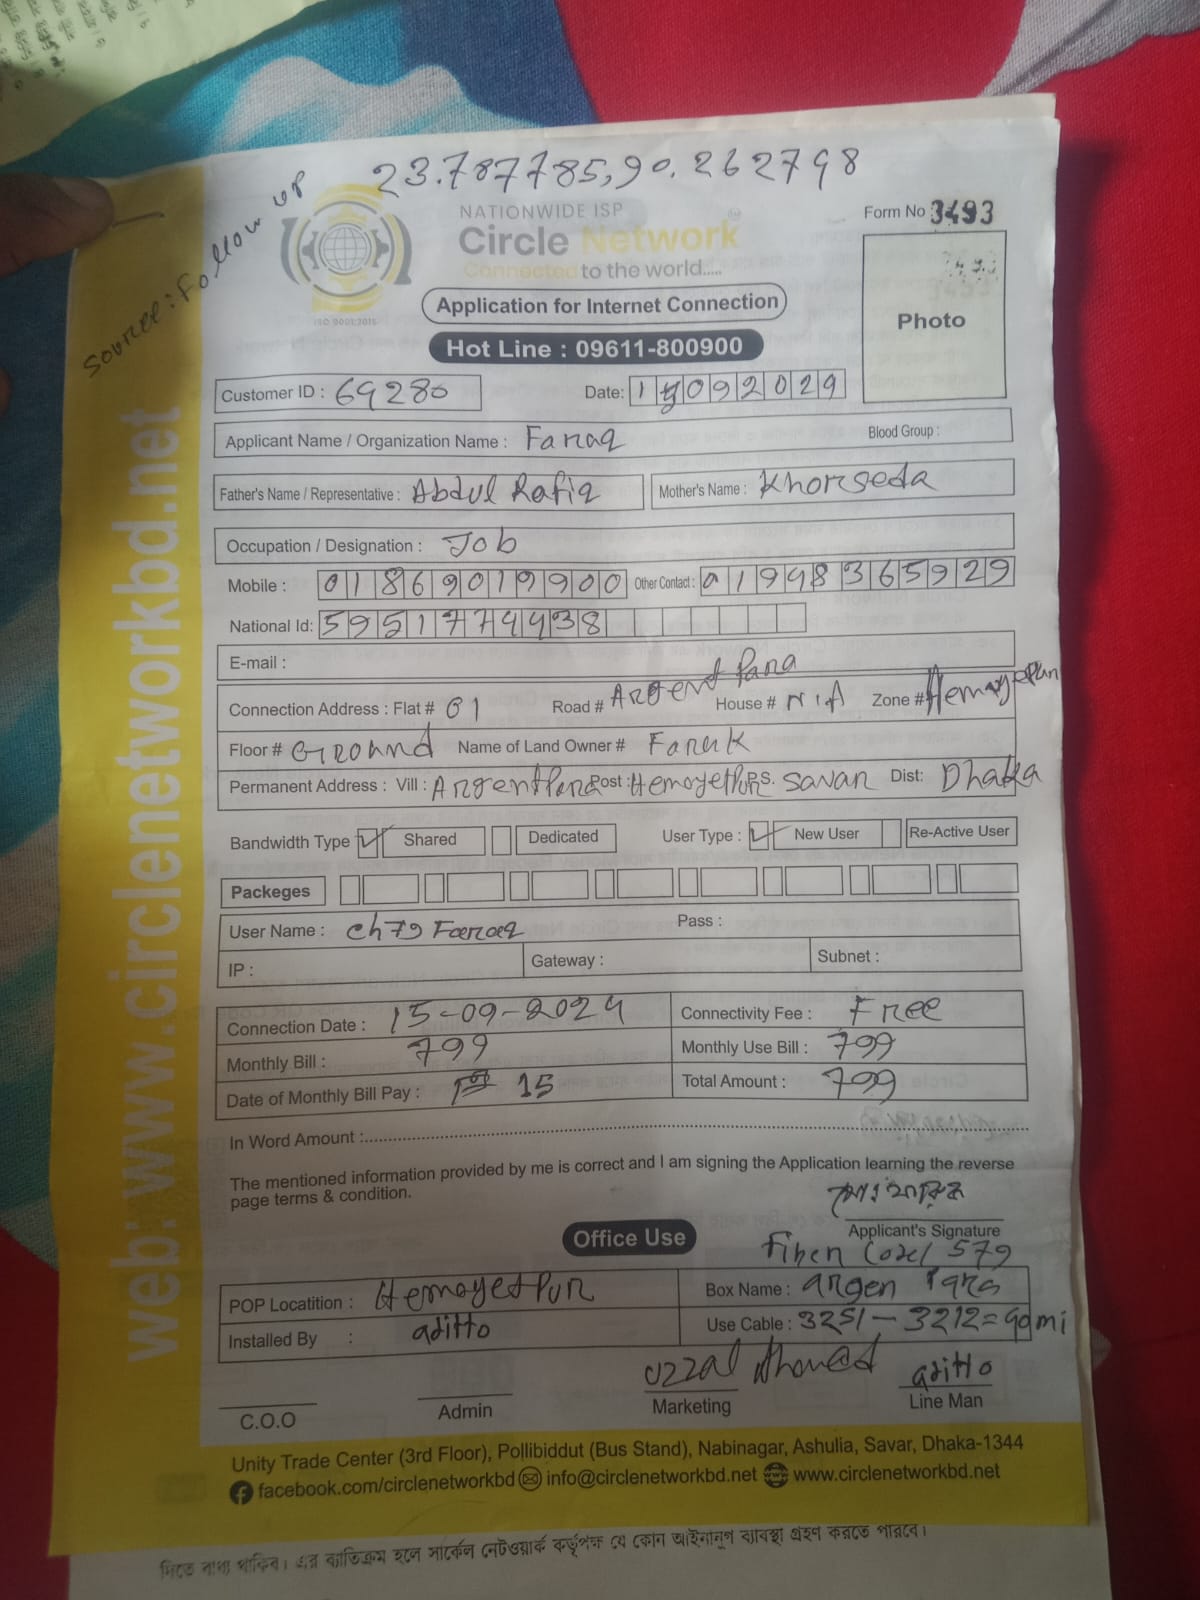 23.787785,90.262798
Source: Follow up
NATIONWIDE ISP
Circle Network
Connected to the world.....
ISO 9001:2015
Form No 3493
Application for Internet Connection
Photo
Hot Line : 09611-800900
Customer ID : 69280
Date: 15092024
Applicant Name / Organization Name : Faraq
Blood Group :
Father's Name / Representative : Abdul Rafiq
Mother's Name : Khorseda
Occupation / Designation : Job
Mobile : 01869019900 Other Contact : 01948365929
National Id: 5951774438
E-mail :
Connection Address : Flat # G1 Road # Argent Para House # N/A Zone # Hemayetpur
Floor # Ground Name of Land Owner # Faruk
Permanent Address : Vill : Argent Para Post : Hemayetpur P.S. Savar Dist: Dhaka
Bandwidth Type Shared Dedicated User Type : New User Re-Active User
Packeges
User Name : Ch79 Faroaq Pass :
IP : Gateway : Subnet :
Connection Date : 15-09-2024 Connectivity Fee : Free
Monthly Bill : 799 Monthly Use Bill : 799
Date of Monthly Bill Pay : 15 Total Amount : 799
In Word Amount :
The mentioned information provided by me is correct and I am signing the Application learning the reverse
page terms & condition.
Applicant's Signature
Office Use
Fiber Code/ 579
POP Locatition : Hemayetpur Box Name : argen Para
Installed By : aditto Use Cable : 3251 - 3212=
Uzzal Ahmed aditto
C.O.O Admin Marketing Line Man
Unity Trade Center (3rd Floor), Pollibiddut (Bus Stand), Nabinagar, Ashulia, Savar, Dhaka-1344
facebook.com/circlenetworkbd info@circlenetworkbd.net www.circlenetworkbd.net
web: www.circlenetworkbd.net
দিতে বাধ্য থাকিব। এর ব্যতিক্রম হলে সার্কেল নেটওয়ার্ক কর্তৃপক্ষ যে কোন আইনানুগ ব্যবস্থা গ্রহণ করতে পারবে।